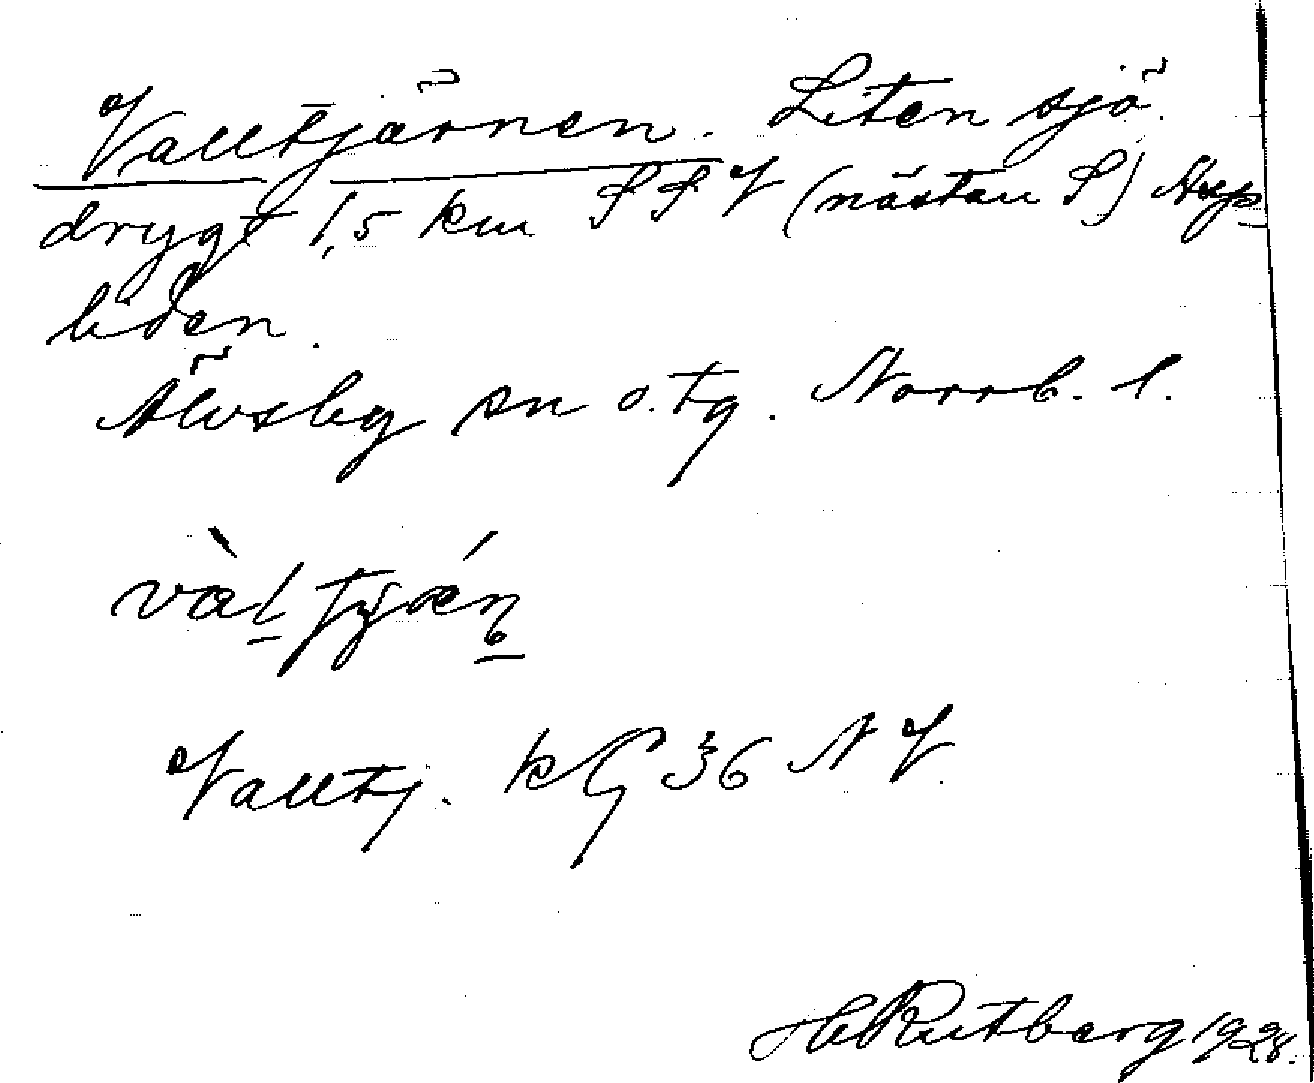 Valltjärnen. Liten sjö
drygt 1,5 km SSV (nästan S)
liden.
Älvsby sn o. tg. Norrb. l.
Valltj. kG 36 NV.
H Rutberg 1928.